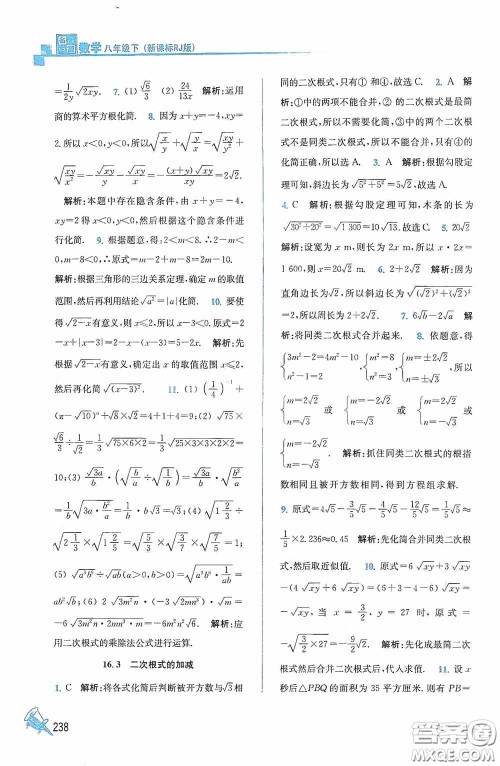 数学 八年级下 (新课标RJ版)
=1/(2y)√(2xy). 7. (1)√6/3 (2)24/(13x) 解析:运用
商的算术平方根化简. 8. 因为 x+y=-4,xy=
2.所以 x<0,y<0.所以√(x/y)+√(y/x)=√(xy/y²)+
√(xy/x²)=-√(xy)/y-√(xy)/x=-(x+y)/(xy)·√(xy)=2√2.
解析:本题中存在隐含条件,由 x+y=-4,
xy=2 得 x<0,y<0,然后根据这个隐含条件进
行化简. 9. 根据题意,得:2<m<8.∴2-m<
0,m-8<0,∴原式=m-2-(8-m)=2m-10.
解析:根据三角形的三边关系定理,确定 m 的取值
范围,然后再利用结论√(a²)=|a|化简. 10. 要使
得√(2-x)有意义,则 x≤2,所以 x<3.原式=2
-x+|x-3|=2-x+3-x=5-2x. 解析:先
根据√(2-x)有意义,确定 x 的取值范围 x≤2,
然后再化简√((x-3)²). 11. (1)(1/4)⁻¹+
(π-√10)⁰+√8×√2=4+1+4=9;(2)√75×
√6/3÷1/√2=1/3√(75×6×2)=1/3√(25×3×3×2×2)=
10;(3)√(3a)/b·(√(b/a)÷√(1/b))=√(3a)/b·√(b/a)·√b=
1/b√(3a·b/a·b)=√3;
√(2 1/3)×√(1 2/5)=√(5/3)×√(3/7)×√(7/5)=1;
(5)√(a³b⁵)÷√(ab)(a>0,b>0)=√(a³b⁵·1/(ab))
=√(a²b⁴)=ab²;(6)2√(3m²n)·(-3√(2mn³))=
-6√(3m²n·2mn³)=-6√(6m³n⁴). 解析:应
用二次根式的乘除法公式进行运算.
16.3 二次根式的加减
1. C 解析:将各式化简后判断被开方数与√3相
同的二次根式,只有①和④,故选 C. 2. A 解
析:①中的两项不能合并,②的二次根式是最简
二次根式,所以不需要化简,③中的两个二次根
式不是同类二次根式,所以不能合并,只有④的
化简正确,所以选 A. 3. A 解析:根据勾股定
理可知,斜边长为√(5²+5²)=5√2,故选 A.
4. C 解析:根据勾股定理可知,木条的长为
√(30²+20²)=√1300=10√13.故选 C. 5. 20√2
解析:设宽为 x m,则长为 2x m,所以 x·2x=
1600,则 x=20√2 m. 6. 2+2√2 解析:因为
直角边长为√2,所以斜边长为√((√2)²+(√2)²)=
2,所以周长为 2+2√2. 7. 6√b-2√a 解析:
将同类二次根式合并起来. 8. 依题意,得
{3m²-2=4m²-10, n²-1=2, {m²=8, n²=3, {m=±2√2, n=±√3, 所以
{m=2√2 n=√3 或{m=2√2 n=-√3 或{m=-2√2 n=√3 或
{m=-2√2 n=-√3. 解析:抓住同类二次根式的根指
数相同且被开方数相同,得到方程组求解.
9. 原式=4√5-3/5√5-12/5√5-4/5√5=1/5√5≈
1/5×2.236≈0.45 解析:先化简合并同类二次根
式,然后求近似值. 10. 原式=6√(xy)+3√(xy)
-(4√(xy)+6√(xy))=(6+3-4-6)√(xy)
=-√(xy),当 x=3/2,y=27 时,原式=
-√(3/2×27)=-9/2√2. 解析:先化成最简二
次根式,然后合并同类项后,代入求值. 11. 设 x
秒后△PBQ 的面积为 35 平方厘米,则有 PB=
238
答案圈
MXQE.COM